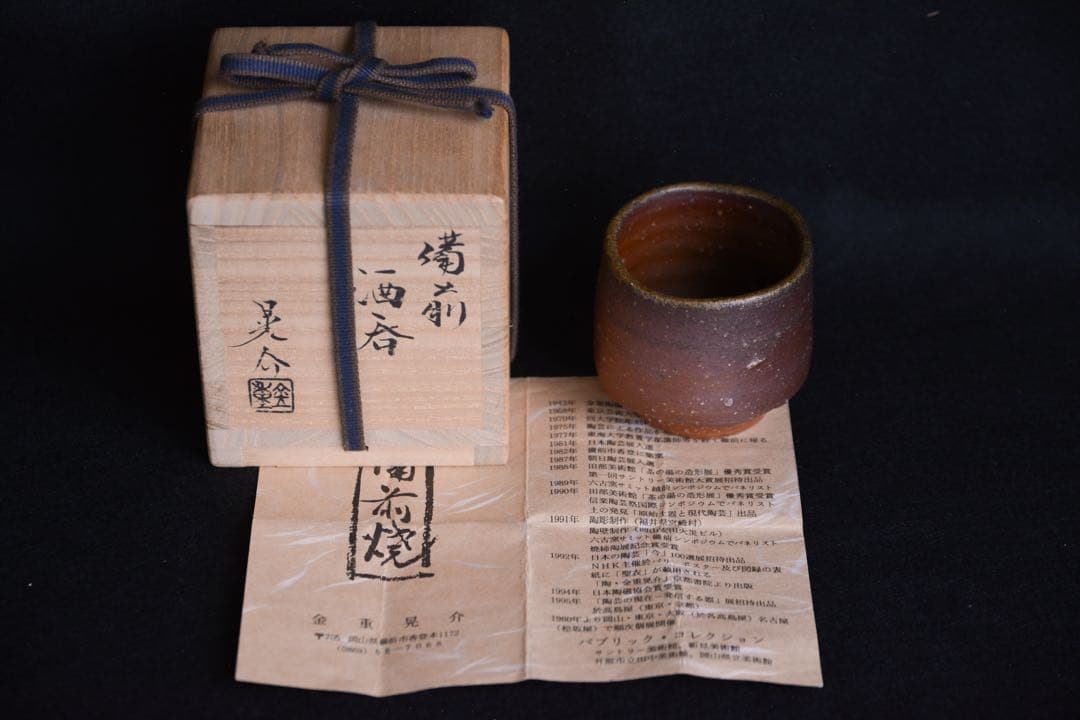 備前
酒呑
晃介
備前焼
金重晃介
〒705 岡山県備前市香登本1172
1943年
1968年 東京芸術大
1970年 同大学院彫刻
1975年 陶芸による作品を
1977年
1981年 日本陶芸展入選
1982年 備前市香登に築窯
1987年 朝日陶芸展入選
1988年 田部美術館「茶の湯の造形展」優秀賞受賞
第一回サントリー美術館大賞展招待出品
1989年 六古窯サミット越前シンポジウムでパネリスト
1990年 田部美術館「茶の湯の造形展」優秀賞受賞
信楽陶芸祭国際シンポジウムでパネリスト
土の発見「原始土器と現代陶芸」出品
1991年 陶彫制作（福井県宮崎村）
陶壁制作（岡山安田火災ビル）
六古窯サミット備前シンポジウムでパネリスト
焼締陶展記念賞受賞
1992年 日本の陶芸「今」100選展招待出品
NHK主催於パリーポスター及び図録の表
紙に「聖衣」が載用される
「陶・金重晃介」京都書院より出版
1994年 日本陶磁協会賞受賞
1995年 「陶芸の現在－発信する器」展招待出品
於高島屋（東京・京都）
1980年より岡山・東京・大阪（於各高島屋）名古屋
（松坂屋）で順次個展開催
パブリック・コレクション
サントリー美術館、新見美術館
井原市立田中美術館、岡山県立美術館